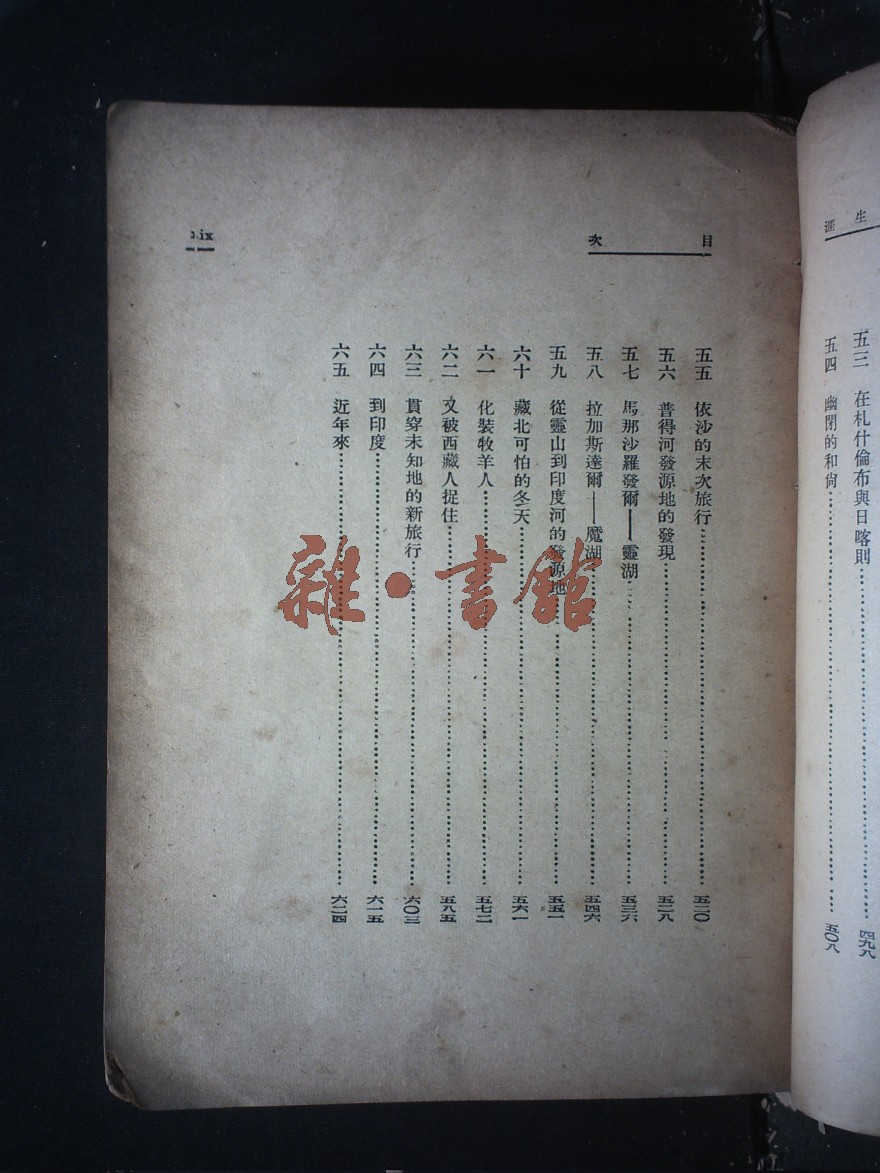 生涯
五三 在札什倫布與日喀則 四九八
五四 幽閉的和尙 五〇八
目次
ix
五五 依沙的末次旅行 五二〇
五六 普得河發源地的發現 五二八
五七 馬那沙羅發爾——靈湖 五三六
五八 拉加斯達爾——魔湖 五四六
五九 從靈山到印度河的發源地 五五一
六十 藏北可怕的冬天 五六一
六一 化裝牧羊人 五七二
六二 又被西藏人捉住 五八五
六三 貫穿未知地的新旅行 六〇三
六四 到印度 六一五
六五 近年來 六二四
雜·書館